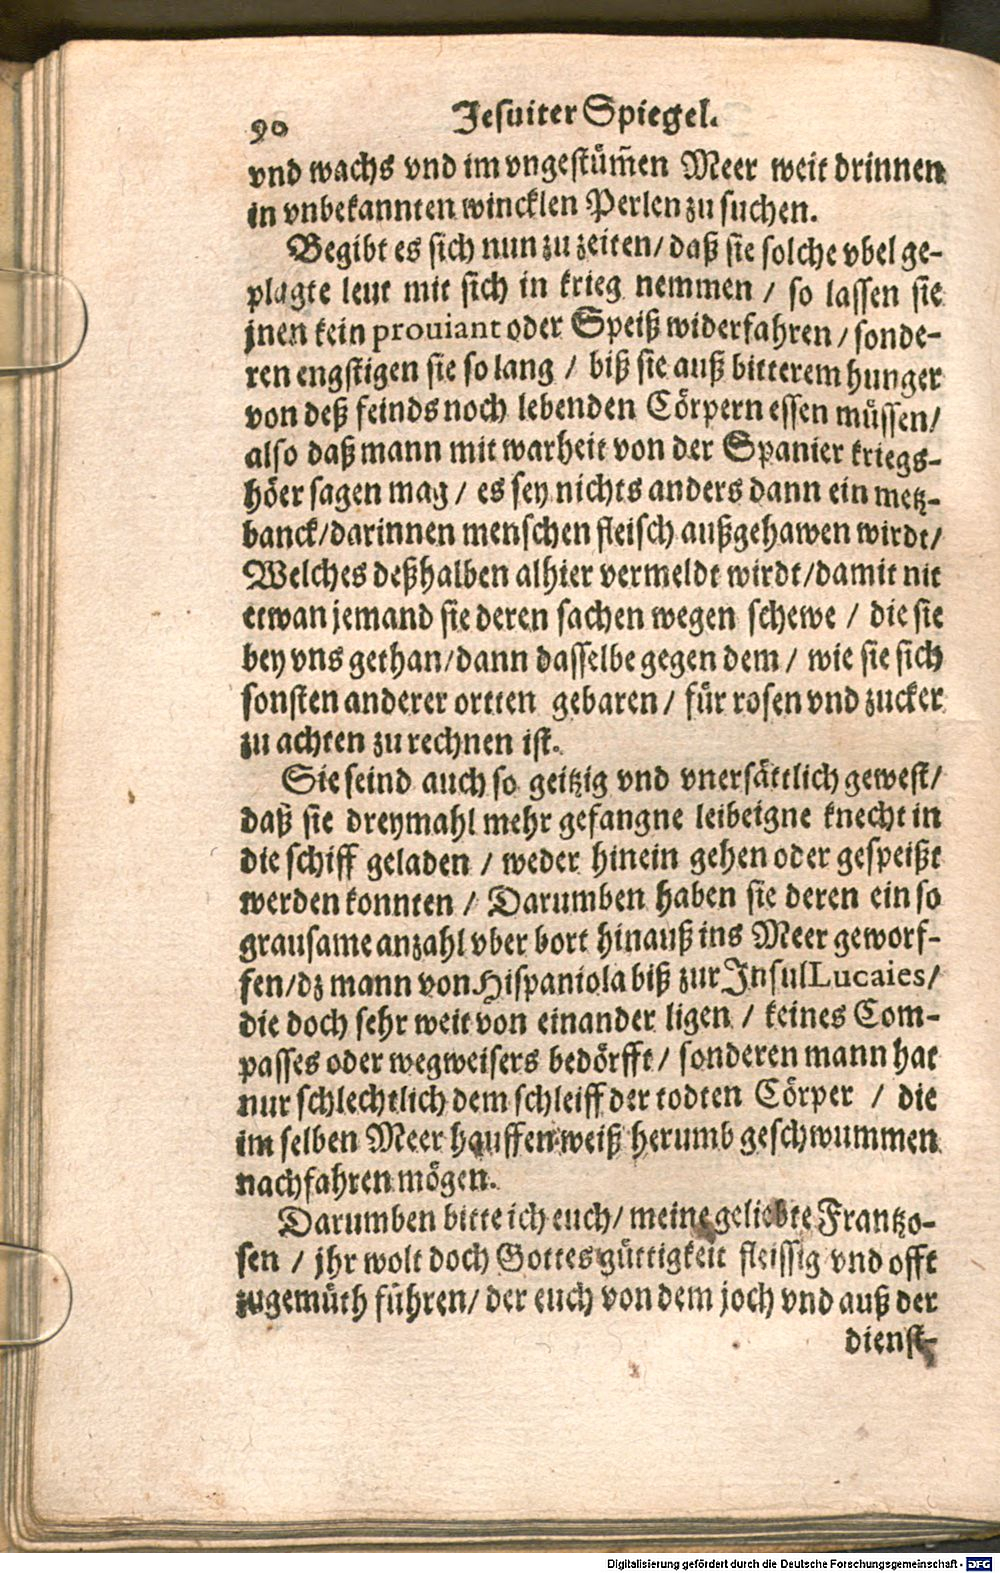 90
Jesuiter Spiegel.
vnd wachs vnd im vngestüm̃en Meer weit drinnen
in vnbekannten wincklen Perlen zu suchen.
Begibt es sich nun zu zeiten/ daß sie solche vbel ge-
plagte leut mit sich in krieg nemmen / so lassen sie
jnen kein prouiant oder Speiß widerfahren / sonde-
ren engstigen sie so lang / biß sie auß bitterem hunger
von deß feinds noch lebenden Cörpern essen müssen/
also daß mann mit warheit von der Spanier kriegs-
höer sagen mag / es sey nichts anders dann ein metz-
banck/darinnen menschen fleisch außgehawen wirdt/
Welches deßhalben alhier vermeldt wirdt/damit nit
etwan jemand sie deren sachen wegen schewe / die sie
bey vns gethan/dann dasselbe gegen dem / wie sie sich
sonsten anderer ortten gebaren / für rosen vnd zucker
zu achten zu rechnen ist.
Sie seind auch so geitzig vnd vnersättlich gewest/
daß sie dreymahl mehr gefangne leibeigne knecht in
die schiff geladen / weder hinein gehen oder gespeißt
werden konnten / Darumben haben sie deren ein so
grausame anzahl vber bort hinauß ins Meer geworf-
fen/dz mann von Hispaniola biß zur Insul Lucaies/
die doch sehr weit von einander ligen / keines Com-
passes oder wegweisers bedörfft/ sonderen mann hat
nur schlechtlich dem schleiff der todten Cörper / die
im selben Meer hauffen weiß herumb geschwummen
nachfahren mögen.
Darumben bitte ich euch/ meine geliebte Frantzo-
sen / jhr wolt doch Gottes güttigkeit fleissig vnd offt
zugemüth führen/ der euch von dem joch vnd auß der
dienst-
Digitalisierung gefördert durch die Deutsche Forschungsgemeinschaft - DFG